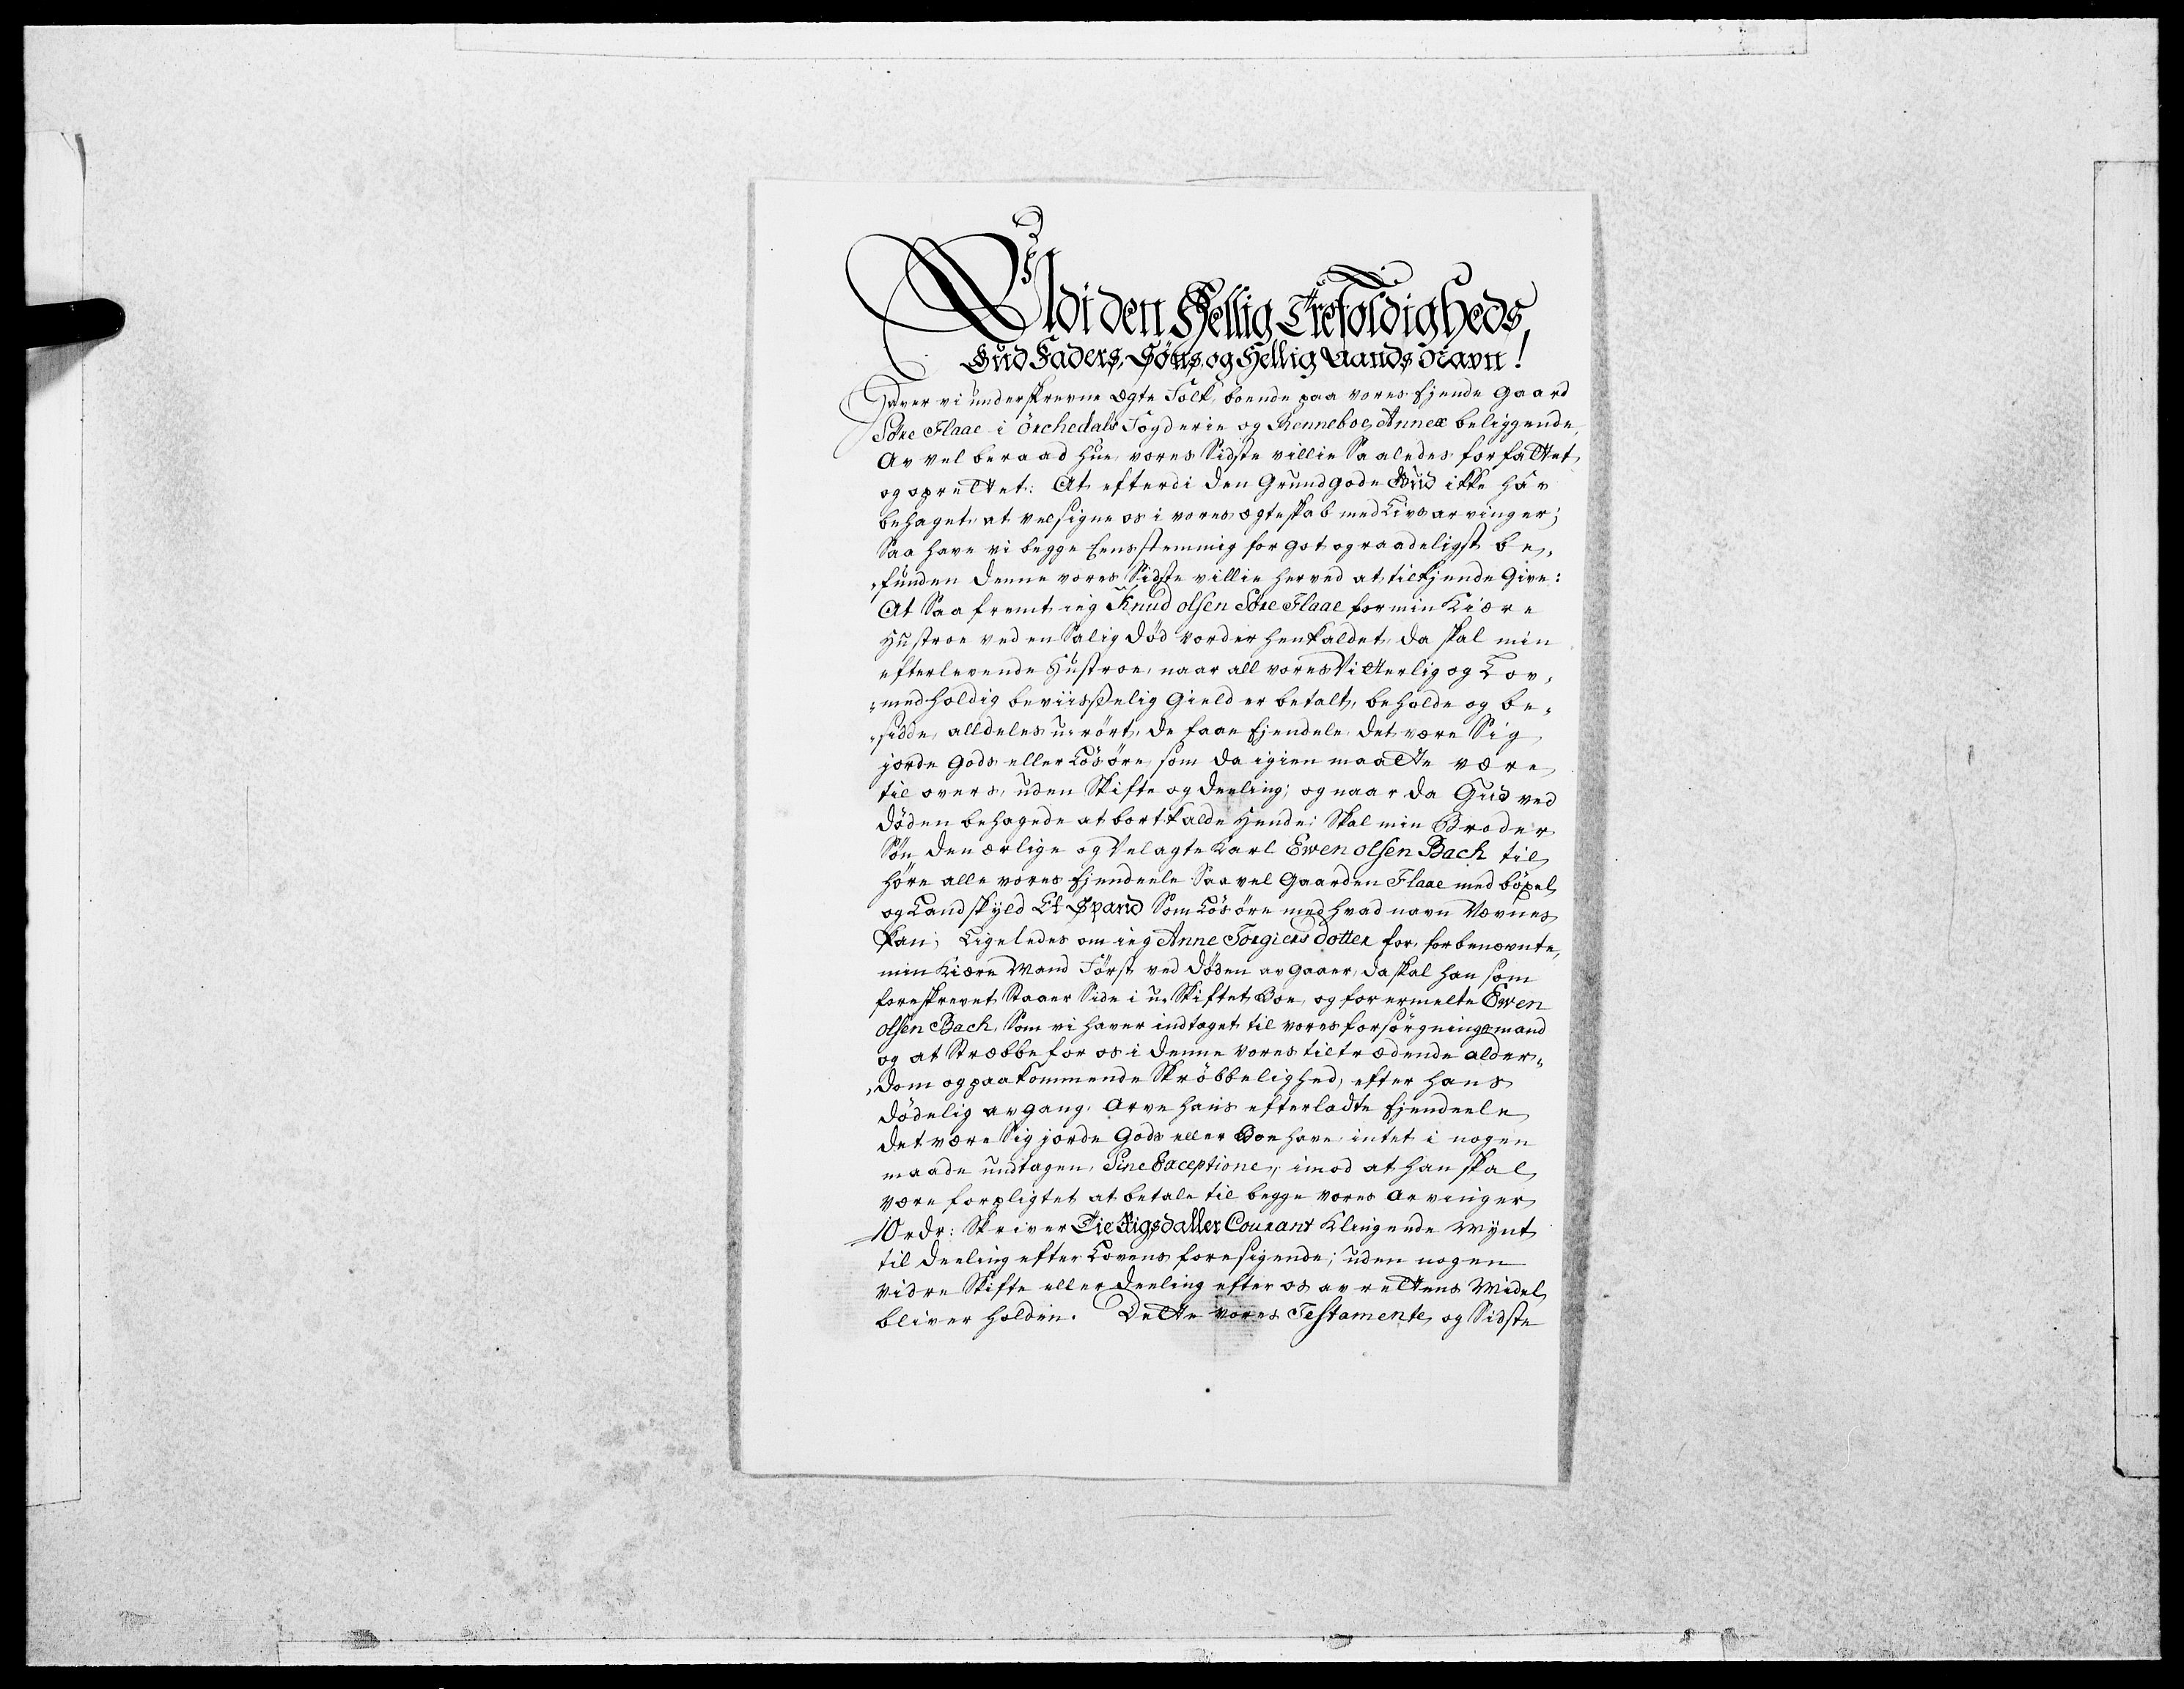 Udi den Hellig Trefoldigheds,
Gud Faders, Søns, og Hellig Aands Navn!
Haver vi underskrevne Ægte Folk, boende paa vores Ejende Gaard
Søre Flaae i Örchedals Fogderie og Renneboe, Annex beliggende,
Av vel beraad Hue, vores Sidste villie Saaledes forfattet
og oprettet: At efterdi den Grundgode Gud ikke hâr
behaget, at velsigne os i vores ægteskab med Livs arvinger;
Saa have vi begge Eensstemmig for got og raadeligst be-
funden denne vores Sidste villie herved at tilkjende Give:
At Saa fremt ieg Knud olsen Søre Flaae for min Kiære
Hustroe ved en Salig Død vorder henkaldet, da skal min
efterlevende Hustroe, naar all vores Vitterlig og Lov-
medholdig beviisselig Gield er betalt, beholde og be-
sidde, alldeles u-rört, de faae Ejendele, det være Sig
jorde Gods eller Lösöre, som da igien maatte være
til overs, uden Skifte og Deeling; og naar da Gud ved
Døden behagede at bortkalde Hende: Skal min Broder
Søn den ærlige og Velagte Karl Ewen olsen Bach til
høre alle vores Ejendeele Saavel Gaarden Flaae med böxel
og Landskyld Et Spand Som Lösöre med hvad navn Nævnes
kan; Ligeledes om ieg Anne Torgiers dotter for, forbenævnte,
min Kiære Mand Först ved Døden avgaaer, da skal han som
foreskrevet Staaer Side i u-Skiftet Boe, og forermelte Ewen
olsen Bach, Som vi haver indtaget til vores forsörgningsmand
og at Stræbbe for os i denne vores tiltrædende alder-
dom og paakommende Skröbbelighed, efter hans
dödelig avgang, Arve hans efterladte Ejendeele
det være Sig jorde Gods eller Boehave intet i nogen
maade undtagen, Sine Exceptione, imod at han skal
være forpligtet at betale til begge vores Arvinger
10 rdr: Skriver Tie Rigsdaller Courant Klingende Mynt
til Deeling efter Lovens foresigende; uden nogen
vidre Skifte eller Deeling efter os av rettens Midel
bliver holden. Dette vores Testamente og Sidste